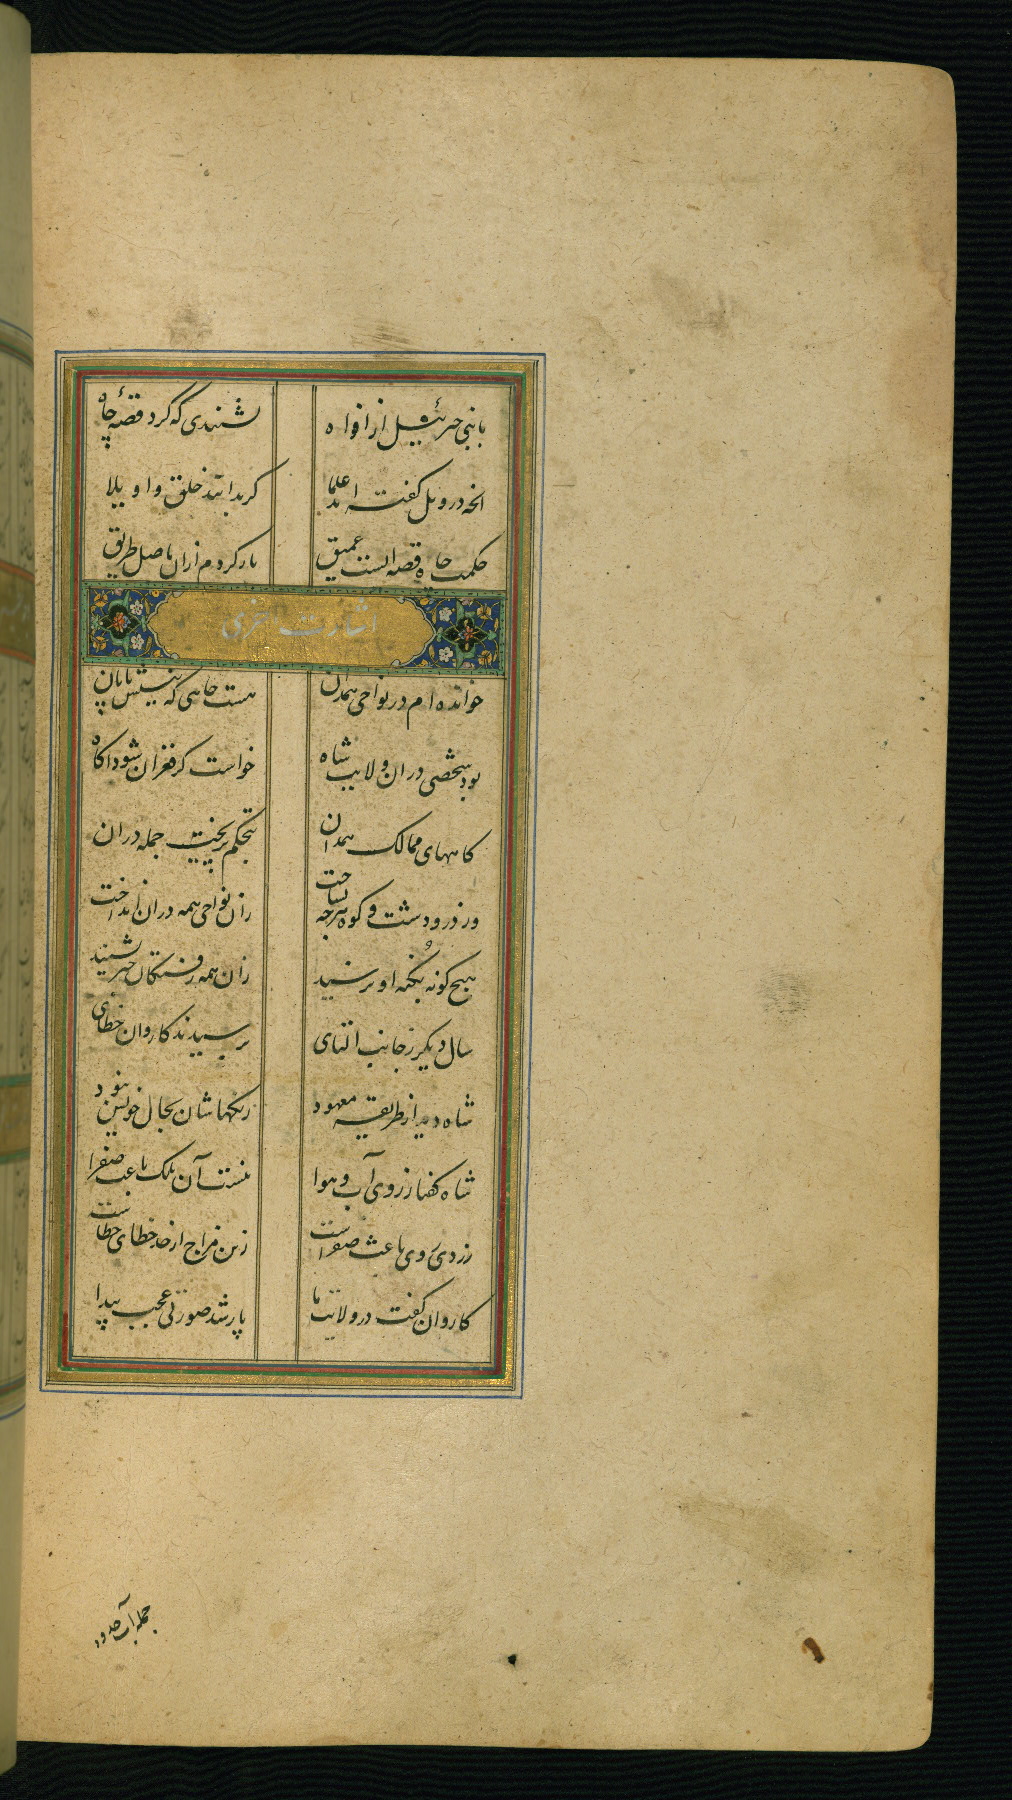 بانبی جبرئیل از افواه شنیدی که کرد قصهٔ چاه
انچه در ویل گفته اند علما کربدانند خلق واویلا
حکمت چاه قصه ایست عمیق بازکردم ازان باصل طریق
اشارت اخری
خوانده ام در نواحی همدان هست چاهی که نیستش پایان
بود شخصی دران ولایت شاه خواست کز قعر آن شود اکاه
کاههای ممالک همدان بتحکم بریخت جمله دران
ور ز رود و دشت و کوه هرچه بساخت زان نواحی همه دران انداخت
هیچ کونه بکنه او نرسید زان همه رفتکان خبر نشنید
سال دیکر ز جانب التای برسیدند کاروان خطای
شاه دید از طریقه معهود رنکهاشان بحال خویش نبود
شاه کفتا ز روی آب و هوا نیست آن ملک باعث صفرا
زردی روی باعث صفراست زین مزاج از حد خطای خطاست
کاروان کفت در ولایت ما پار شد صورتی عجب پیدا
جمله آب حدود